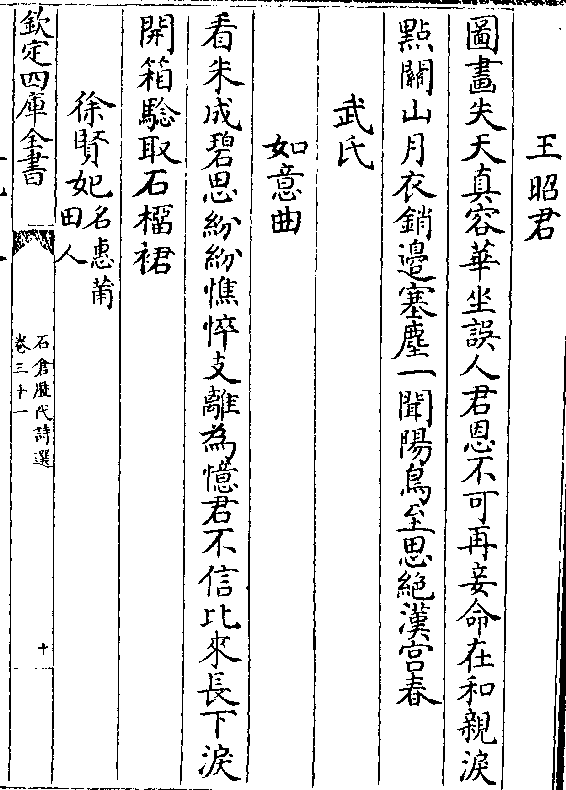 王昭君
圖畫失天真容華坐誤人君恩不可再妾命在和親淚
點關山月衣銷邉塞塵一聞陽鳥至思絶漢宫春
武氏
如意曲
看朱成碧思紛紛憔悴支離為憶君不信比來長下淚
開箱驗取石榴裙
徐賢妃名惠莆
田人
欽定四庫全書
石倉歴代詩選
卷三十一
十